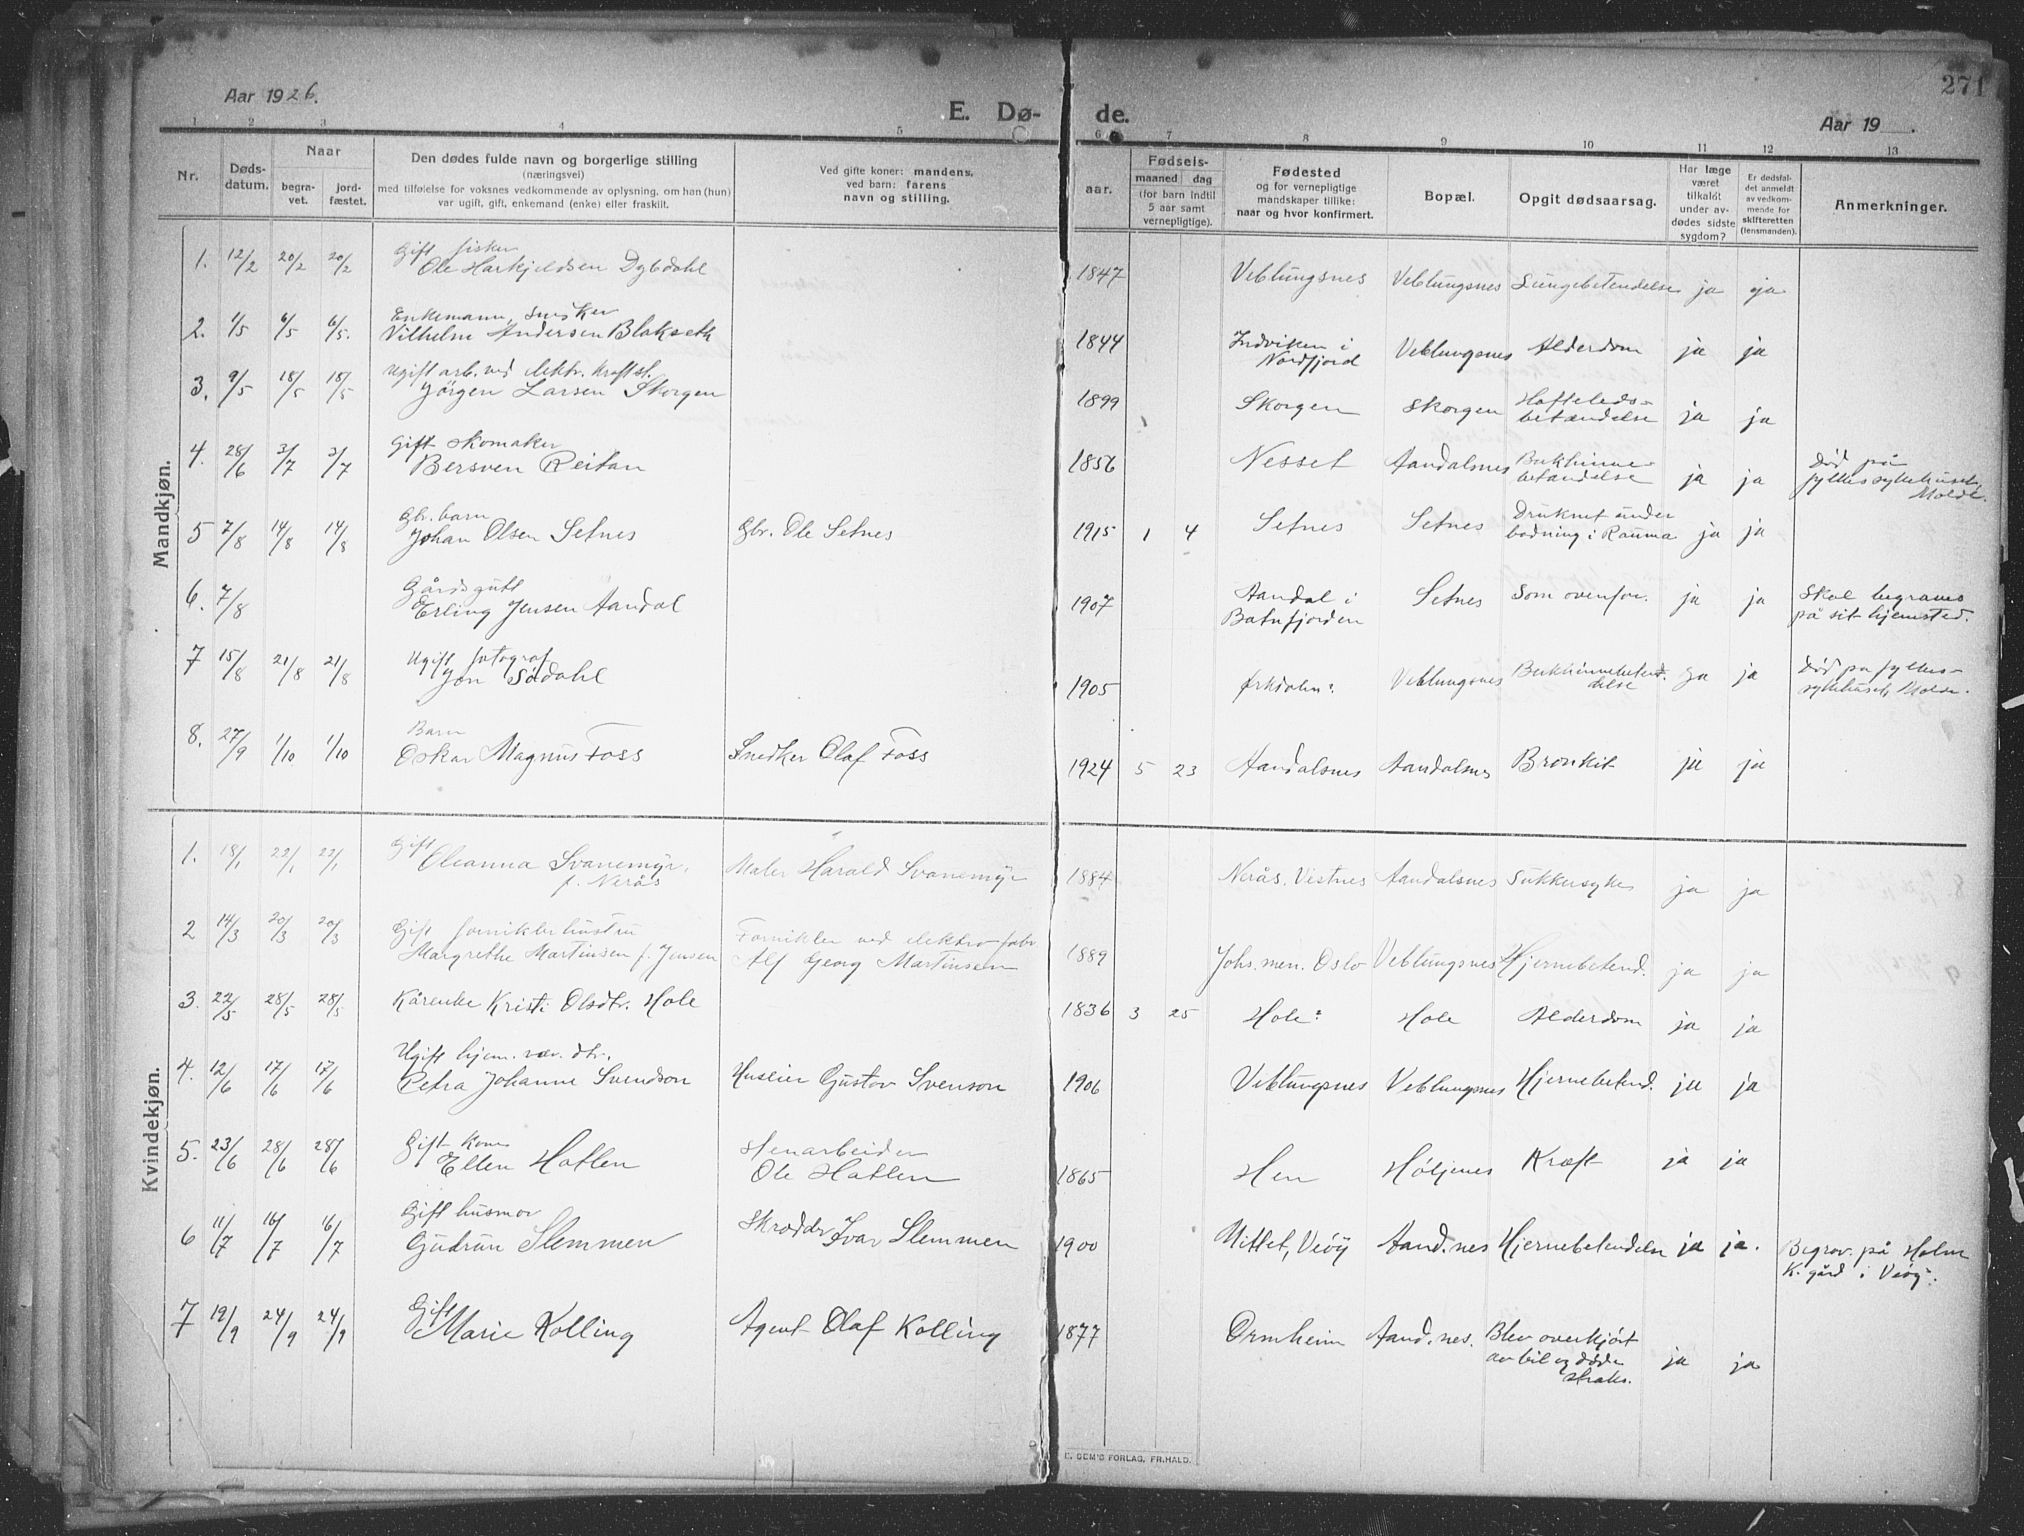 271
Aar 1926.
E. Dø- de.
Aar 19 .
1 2 3 4 5 6 7 8 9 10 11 12 13
Nr.
Døds-
datum.
Naar
begra-
vet.
jord-
fæstet.
Den dødes fulde navn og borgerlige stilling
(næringsvei)
med tilføielse for voksnes vedkommende av oplysning, om han (hun)
var ugift, gift, enkemand (enke) eller fraskilt.
Ved gifte koner: mandens,
ved barn: farens
navn og stilling.
aar.
Fødsels-
maaned dag
(for barn indtil
5 aar samt
vernepligtige).
Fødested
og for vernepligtige
mandskaper tillike:
naar og hvor konfirmert.
Bopæl.
Opgit dødsaarsag.
Har læge
været
tilkaldt
under av-
dødes sidste
sygdom?
Er dødsfal-
det anmeldt
av vedkom-
mende for
skifteretten
(lensmanden).
Anmerkninger.
Mandkjøn.
Gift fisker
1. 12/2 20/2 20/2 Ole Harkjeldsen Dybdahl 1847 Veblungsnes Veblungsnes Lungebetendelse ja ja
Enkemann, snisker
2. 1/5 6/5 6/5. Vilhelm Andersen Blakseth 1844 Indviken i Veblungsnes Alderdom ja ja
Nordfjord
Ugift arb. ved elektr. kraftst.
3. 9/5 18/5 18/5 Jörgen Larsen Skorgen 1899 Skorgen Skorgen Hofteleds-
betændelse ja ja
Gift skomaker
4. 28/6 3/7 3/7 Bersven Reitan 1856 Nesset Aandalsnes Bukhinne-
betændelse ja ja
Död på
fylkessykehuset,
Molde.
Gbr. barn
5 7/8 14/8 14/8 Johan Olsen Setnes Gbr. Ole Setnes 1915 1 4 Setnes Setnes Druknet under
badning i Rauma ja ja
Gårdsgutt
6. 7/8 Erling Jensen Aandal 1907 Aandal i Setnes Som ovenfor. ja ja Skal begraves
Batnfjorden på sit hjemsted.
Ugift fotograf
7 15/8 21/8 21/8 Jon Södahl 1905 Ørkdaln? Veblungsnes Bukhinnebetend-
delse ja ja
Död på fylkes-
sykehuset, Molde.
Barn
8. 27/9 1/10 1/10 Oskar Magnus Foss Snedker Olaf Foss 1924 5 23 Aandalsnes Aandalsnes Bronkit ja ja
Kvindekjøn.
Gift
1. 18/1 22/1 22/1 Oleanna Svanemyr, Maler Harald Svanemyr 1884 Nerås, Vestnes Aandalsnes Sukkersyke ja ja
f. Nerås
Gift fornikler hustru Fornikler ved elektro fabr
2 14/3 20/3 20/3 Margrethe Martinsen f. Jensen Alf Georg Martinsen 1889 Johs. men. Oslo Veblungsnes Hjernebetend. ja ja
3. 22/5 28/5 28/5 Kårenke Kristi Olsdtr. Hole 1836 3 25 Hole? Hole Alderdom ja ja
Ugift hjem. vær. dtr.
4. 12/6 17/6 17/6 Petra Johanne Svendson Huseier Gustav Svenson 1906 Veblungsnes Veblungsnes Hjernebetend. ja ja
Gift Kone Stenarbeider
5. 23/6 28/6 28/6 Ellen Hatlen Ole Hatlen 1865 Hen Höljenes Kræft ja ja
Gift husmor
6 11/7 16/7 16/7 Gudrun Slemmen Skrædder Ivar Slemmen 1900 Mittet, Veöy Aand.nes Hjernebetendelse ja ja. Begrav. på Holm
K. gård i Veöy.
Gift
7 19/9 24/9 24/9 Marie Kolling Agent Olaf Kolling 1877 Ormheim Aand.nes. Blev overkjört
av bil og döde
straks. ja ja
E. SEM'S FORLAG, FR.HALD.